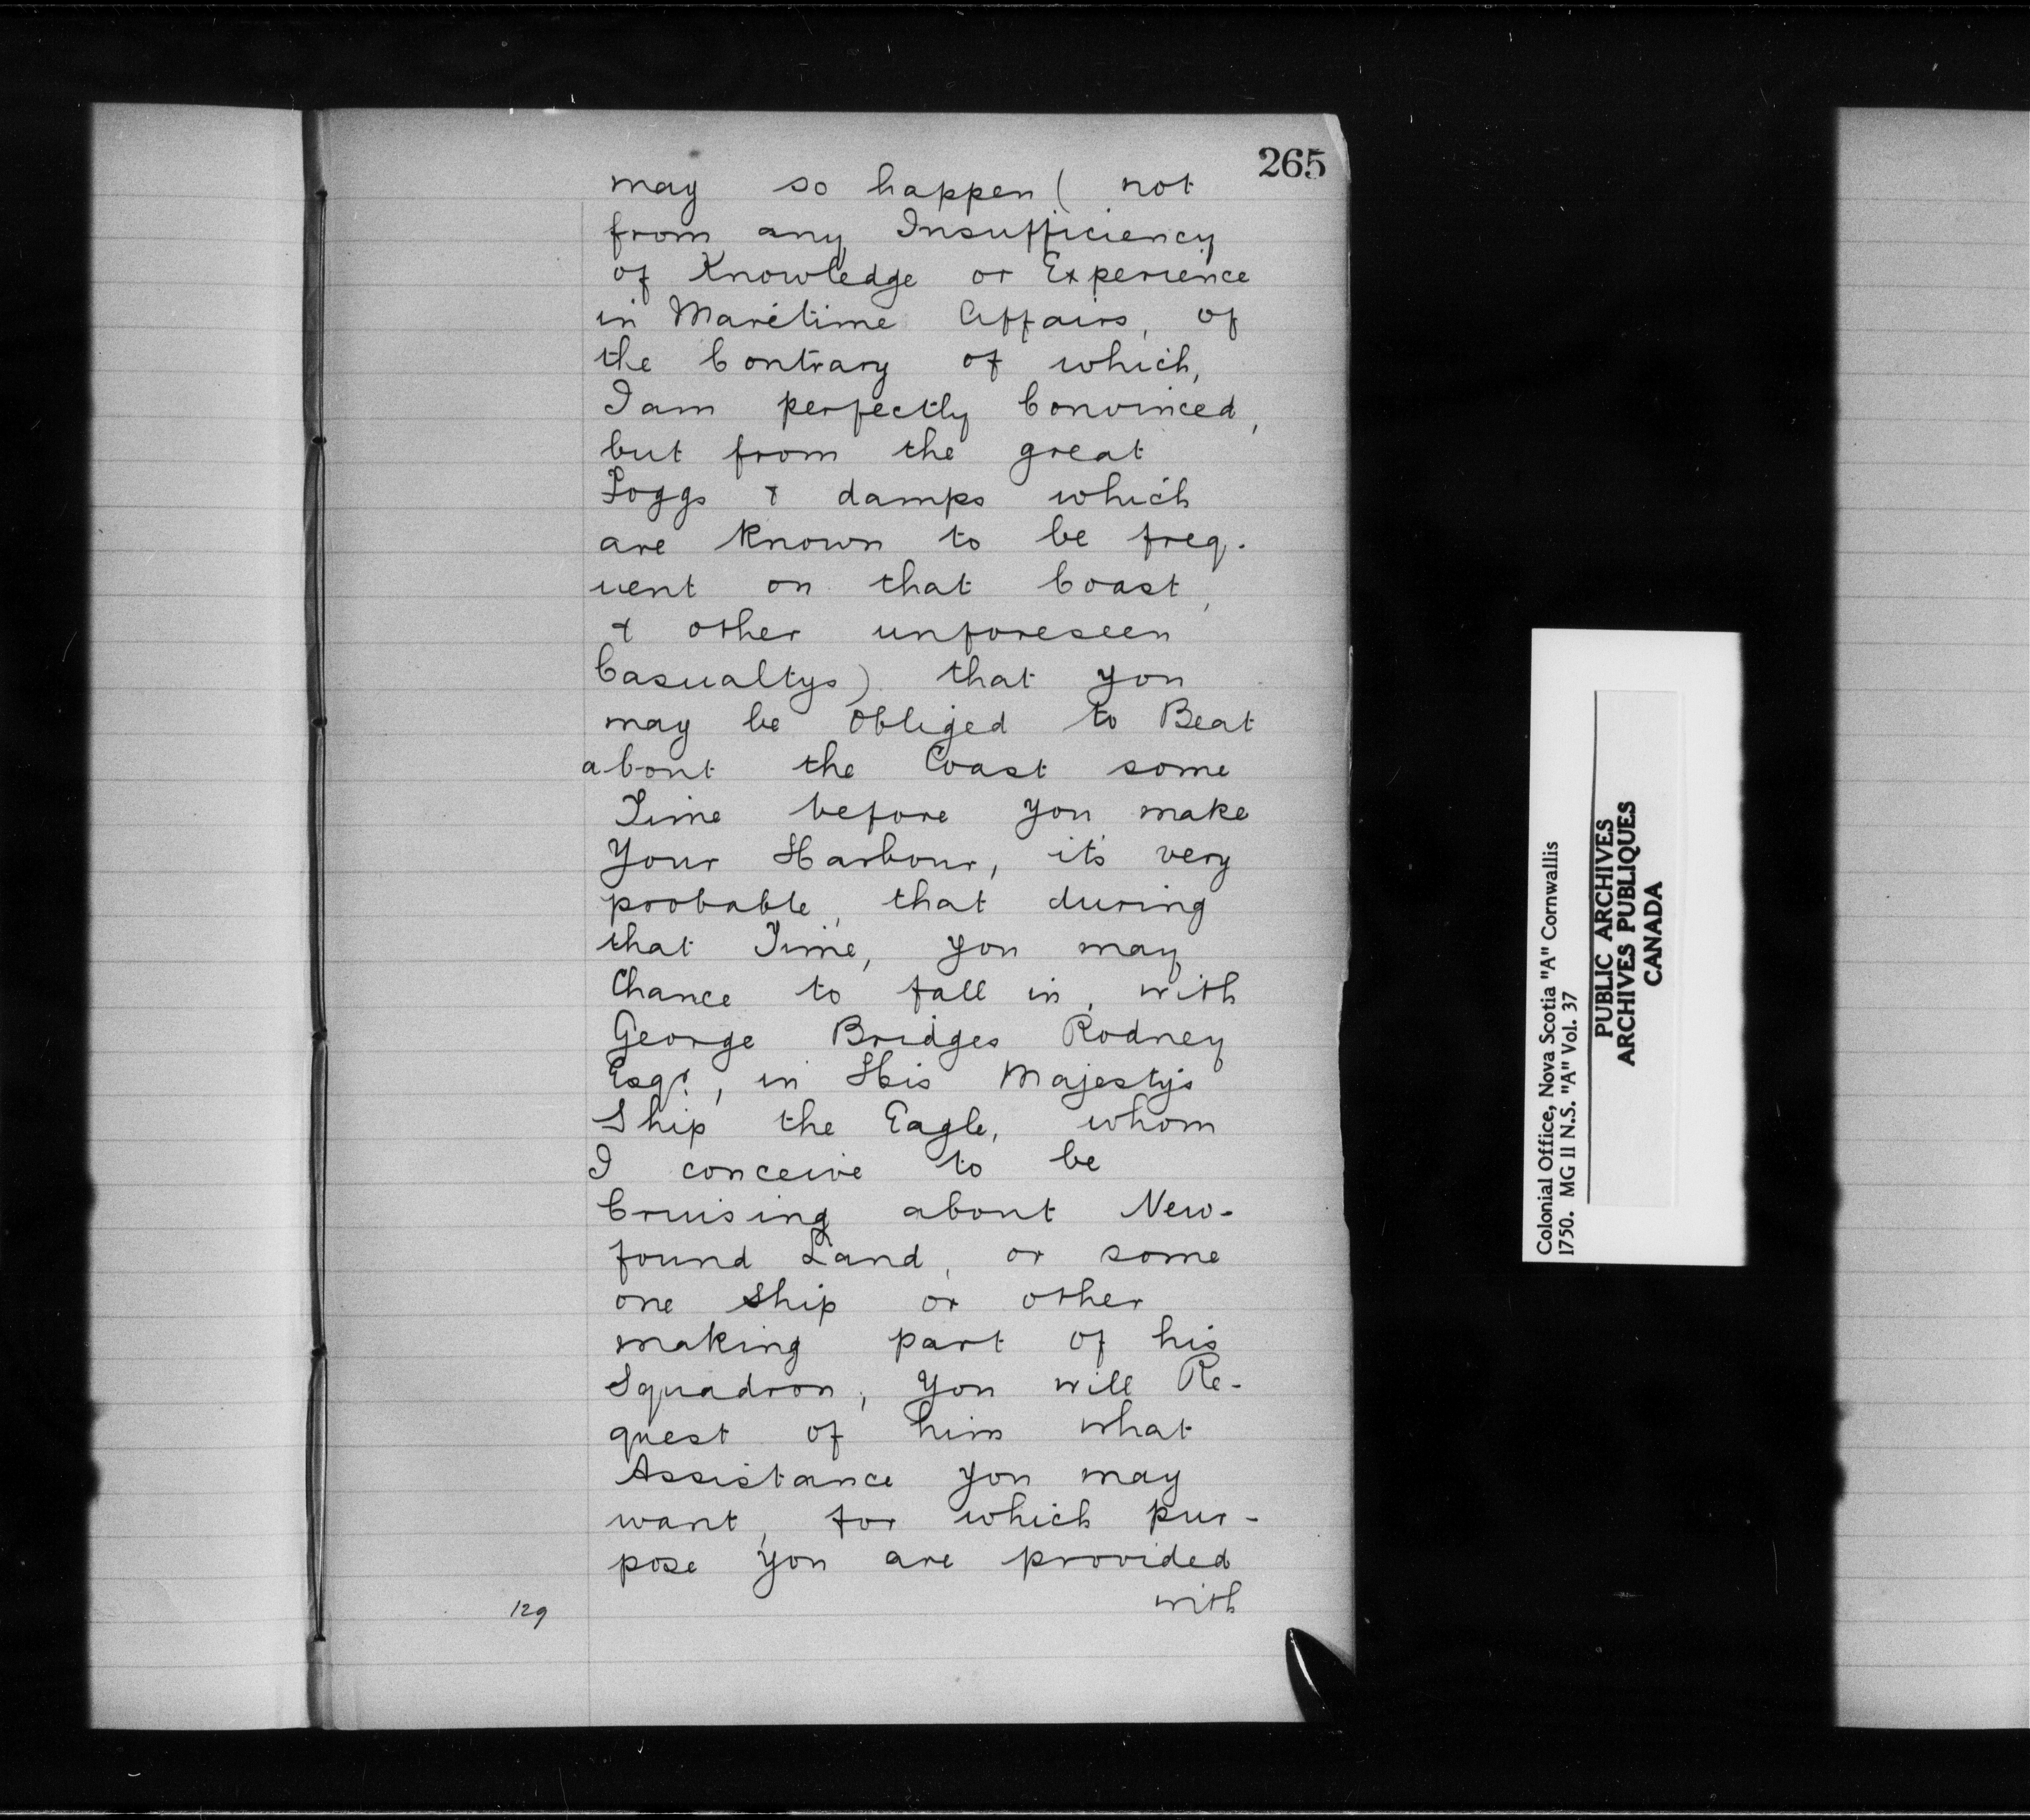 265
may so happen ( not
from any Insufficiency
of Knowledge or Experience
in Maritime Affairs, of
the Contrary of which,
I am perfectly Convinced,
but from the great
Foggs & damps which
are known to be freq-
uent on that Coast,
& other unforeseen
Casualtys) that you
may be obliged to Beat
about the Coast some
Time before you make
Your Harbour, it's very
probable, that during
that Time, you may
Chance to fall in, with
George Bridges Rodney
Esqr., in His Majesty's
Ship the Eagle, whom
I conceive to be
Cruising about New-
found Land, or some
one Ship or other
making part of his
Squadron, You will Re-
quest of him what
Assistance you may
want, for which pur-
pose you are provided
with
129
Colonial Office, Nova Scotia "A" Cornwallis
1750. MG 11 N.S. "A" Vol. 37
PUBLIC ARCHIVES
ARCHIVES PUBLIQUES
CANADA